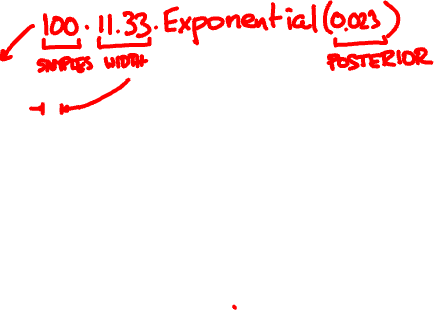 100 · 11.33 · Exponential (0.023)
SAMPLES WIDTH POSTERIOR